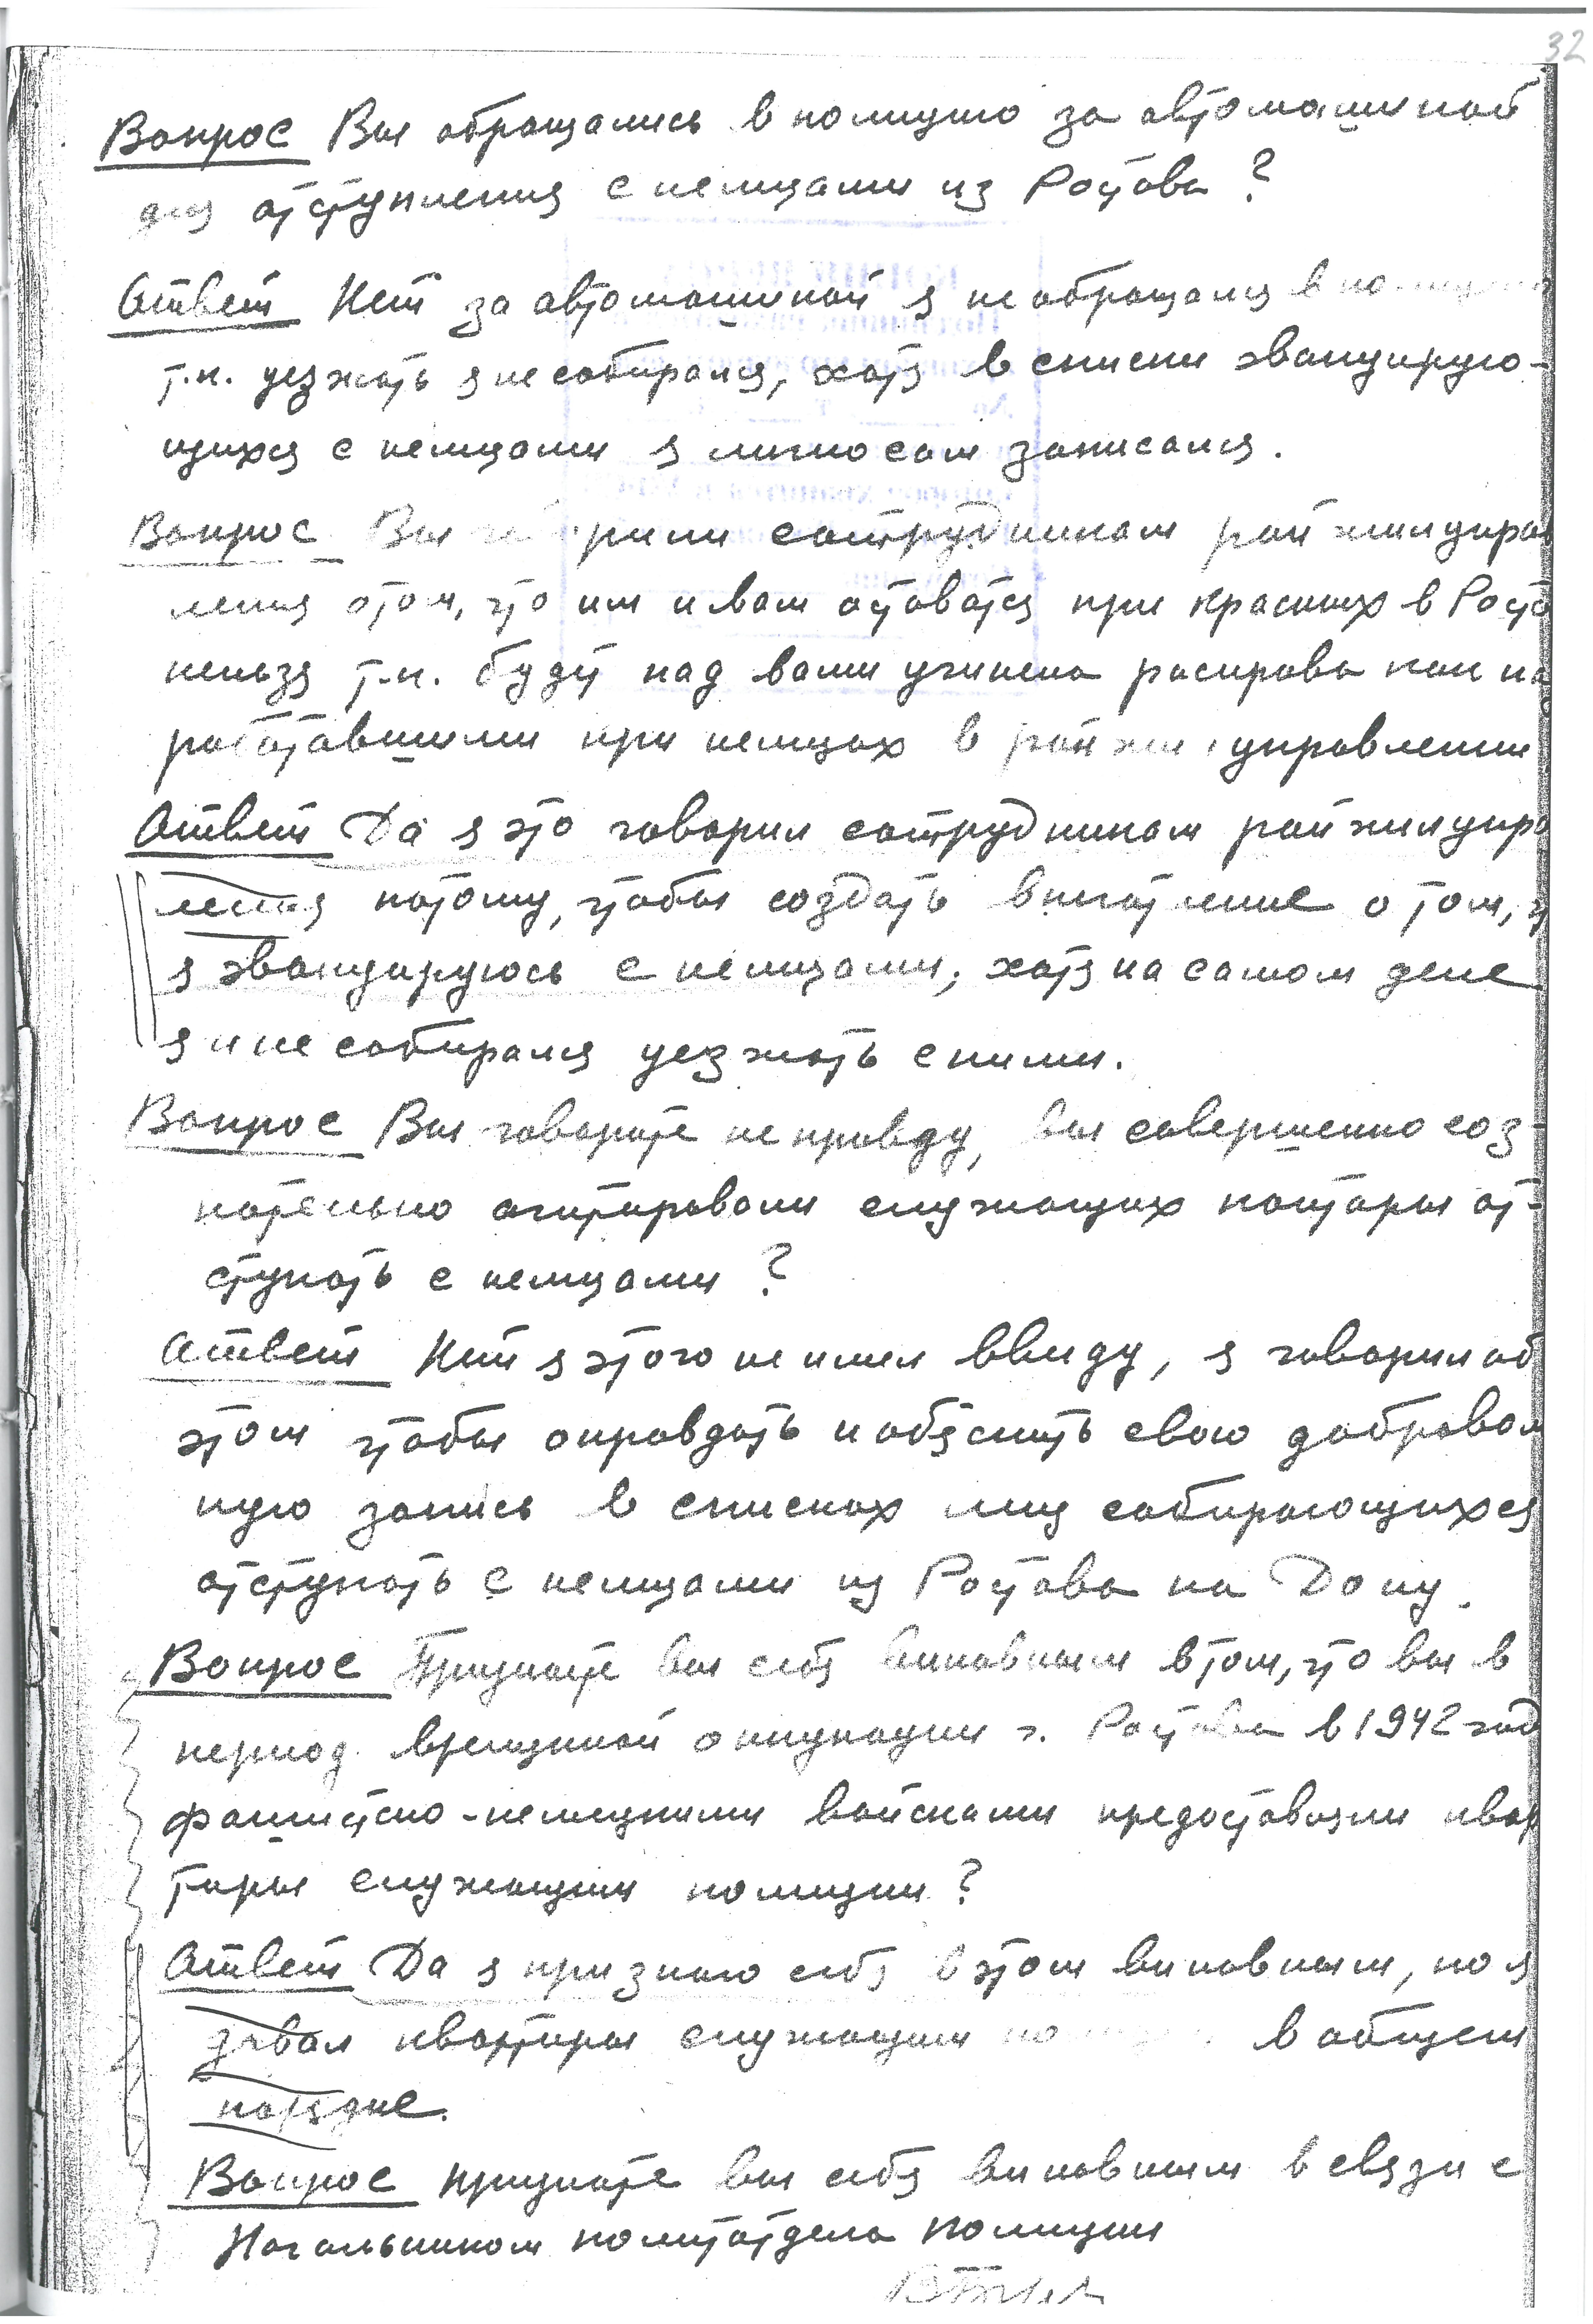 32
Вопрос Вы обращались в полицию за автомашиной
для отступления с немцами из Ростова?
Ответ Нет за автомашиной я не обращался в полицию
т.к. уезжать я не собирался, хотя в списки эвакуирую-
щихся с немцами я лично сам записался.
Вопрос Вы сотрудникам райжилуправ
ления о том, что им и вам оставатся при красных в Росто
нельзя т.к. будут над вами учинена расправа как на
работавшими при немцах в райжилуправлении
Ответ Да я это говорил сотрудникам райжилупра
ления потому, чтобы создать впечатление о том, ч
я эвакуируюсь с немцами, хотя на самом деле
я и не собирался уезжать с ними.
Вопрос Вы говорите не правду, вы совершенно соз-
нательно агитировали служащих конторы от-
ступать с немцами?
Ответ Нет я этого не имел ввиду, я говорил об
этом чтобы оправдать и обяснить свою добровол
ную запись в списках лиц собирающихся
отступать с немцами из Ростова на Дону.
Вопрос Признаете вы себя виновным в том, что вы в
период временной оккупации г. Ростова в 1942 год
фашистско-немецкими войсками предоставляли квар
тиры служащим полиции?
Ответ Да я признаю себя в этом виновным, но я
давал квартиры служащим в общем
порядке.
Вопрос признаете вы себя виновным в связи с
Начальником политотдела полиции